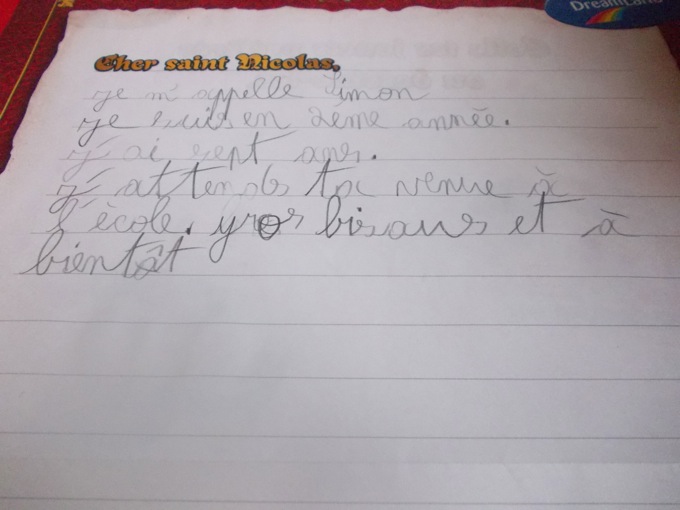 DreamLand
Cher saint Nicolas,
je m'appelle Simon
je suis en 2ème année.
j'ai sept ans.
j'attends ta venue à
l'école. gros bisous et à
bientôt